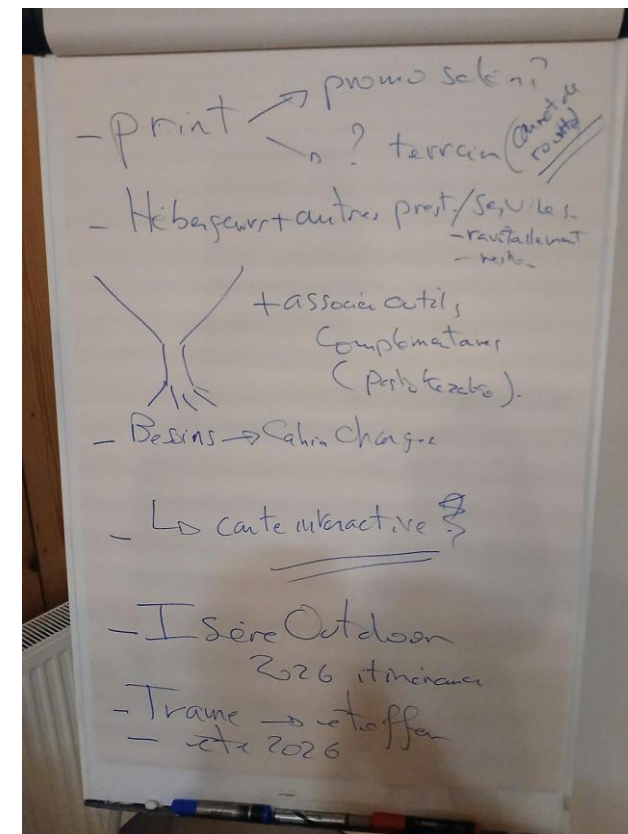 promo salon?
- print
? terrain (carnet de route)
- Hébergeurs + autres prest/services
- ravitaillement
- resto
+ associer outils
complémentaires
- Besoins → Cahier Charges
- ↳ carte interactive
- Isère Outdoor
2026 itinérance
- Trame → etoffer
- été 2026